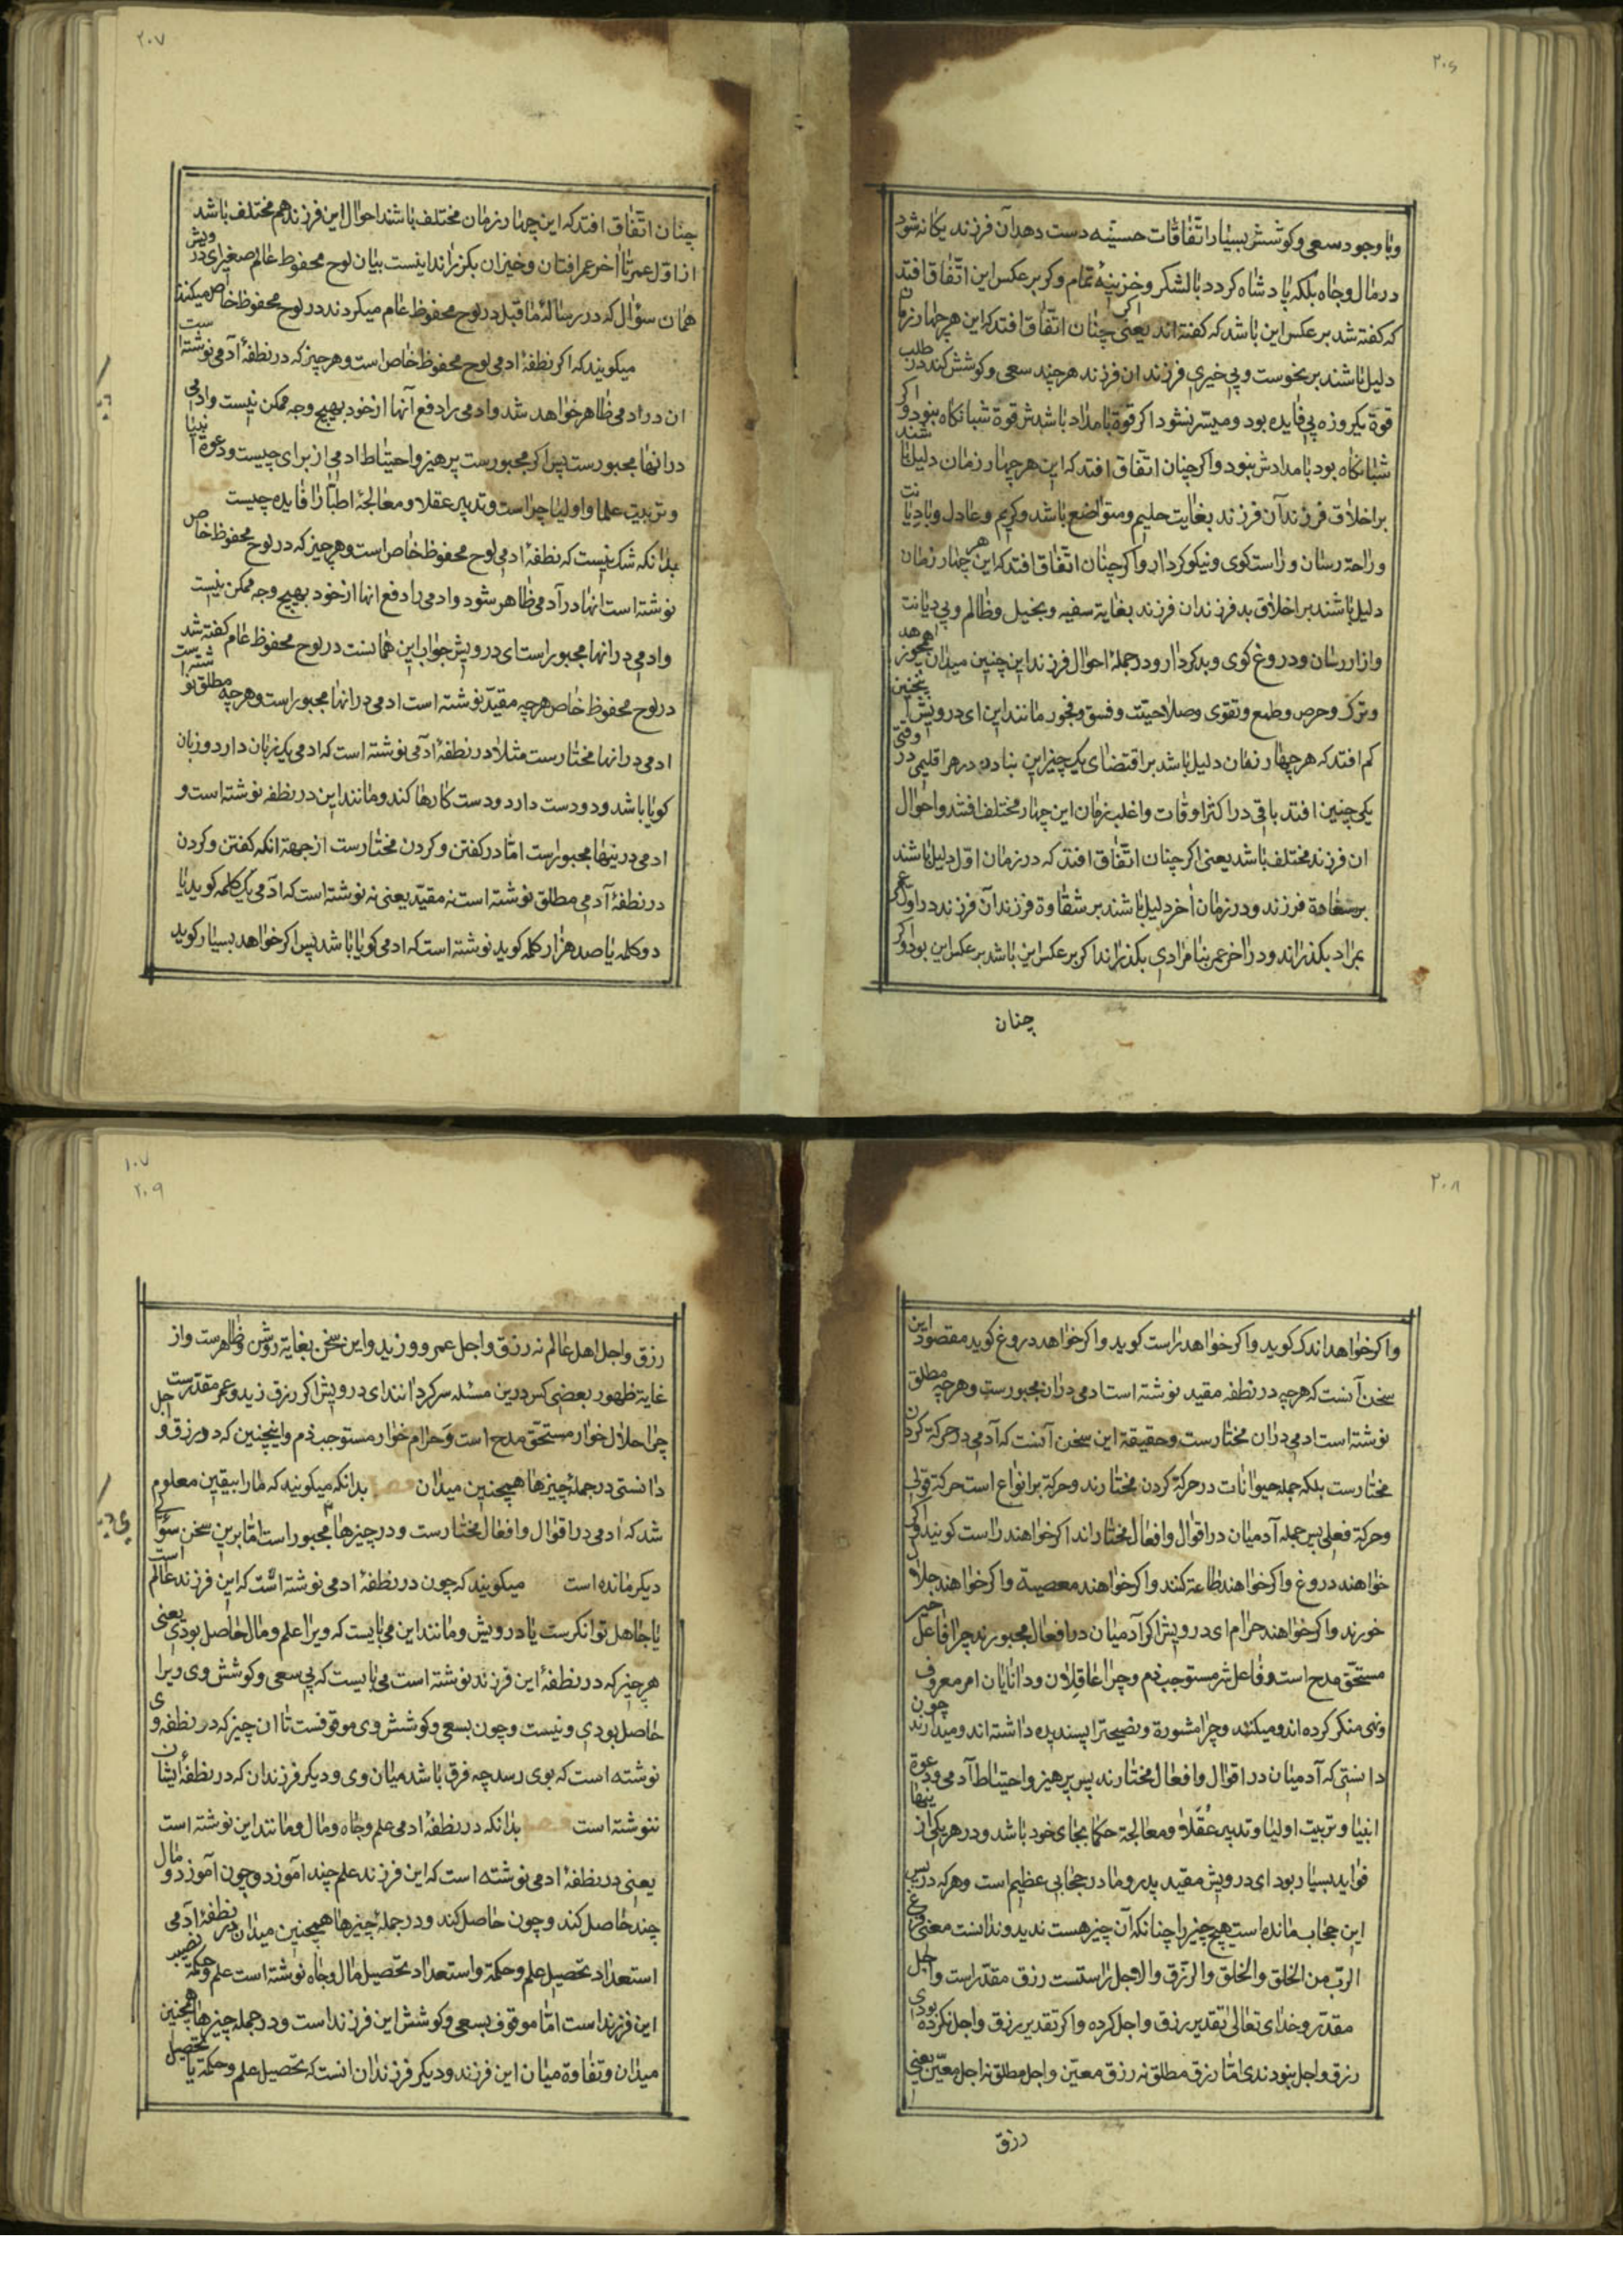 ٢٠٦
وبا وجود سعی وکوشش بسیار اتّفاقات حسنه دست دهد آن فرزند یکانه شود
در مال وجاه بلکه پادشاه کردد بالشکر وخزینهٔ تمام وکر بر عکس این اتّفاق افتد
که کفته شد بر عکس این باشد که کفته اند یعنی اکر چنان اتّفاق افتد که این هر چهار زمان
دلیل باشند بر نحوست وبی خیری فرزند ان فرزند هر چند سعی وکوشش کند در طلب
قوة یکروزه بی فایده بود ومیسّر نشود اکر قوة بامداد باشدش قوة شبانکاه نبود واکر
شبانکاه بود بامدادش نبود واکر چنان اتّفاق افتد که این هر چهار زمان دلیل باشند
بر اخلاق فرزند آن فرزند بغایت حلیم ومتواضع باشد وکریم وعادل وبا دیانت
وراحة رسان وراست کوی ونیکو کردار واکر چنان اتّفاق افتد که این هر چهار زمان
دلیل باشند بر اخلاق بد فرزند ان فرزند بغایة سفیه وبخیل وظالم وبی دیانت
وازار رسان ودروغ کوی وبد کردار ودر جملهٔ احوال فرزند این چنین میدان همچو زهد
وترک وحرص وطمع وتقوی وصلاحیّت وفسق وفجور مانند این ای درویش اینچنین
کم افتد که هر چهار زمان دلیل باشد بر اقتضای یک چیز این بنادر در هر اقلیمی در وقتی
یکی چنین افتد باقی در اکثر اوقات واغلب زمان این چهار مختلف افتند واحوال
ان فرزند مختلف باشد یعنی اکر چنان اتّفاق افتد که در زمان اوّل دلیل باشند
بر سعادة فرزند ودر زمان اخر دلیل باشند بر شقاوة فرزند آن فرزند در اوّل عمر
بمراد بکذراند ودر اخر عمر بنامرادی بکذراند اکر بر عکس این باشد بر عکس این بود واکر
چنان
٢٠٧
چنان اتّفاق افتد که این چهار زمان مختلف باشند احوال این فرزند هم مختلف باشد
از اوّل عمر تا اخر عمر افتان وخیزان بکذراند اینست بیان لوح محفوظ عالم صغیر ای درویش
همان سؤال که در رسالهٔ ما قبل در لوح محفوظ عام میکردند در لوح محفوظ خاص میکنند
میکویند که اکر نطفهٔ ادمی لوح محفوظ خاص است وهر چیز که در نطفهٔ آدمی نوشته است
ان در ادمی ظاهر خواهد شد وادمی را دفع آنها از خود بهیچ وجه ممکن نیست وادمی
در انها مجبورست پس اکر مجبورست پرهیز واحتیاط ادمی از برای چیست ودعوة انبیا
وتربیت علما واولیا چراست وتدبیر عقلا ومعالجهٔ اطبّا را فایده چیست
بدانکه شک نیست که نطفهٔ ادمی لوح محفوظ خاص است وهر چیز که در لوح محفوظ خاص
نوشته است انها در آدمی ظاهر شود وادمی را دفع انها از خود بهیچ وجه ممکن نیست
وادمی در انها مجبور است ای درویش جواب این همانست در لوح محفوظ عام کفته شد
در لوح محفوظ خاص هر چه مقیّد نوشته است ادمی در انها مجبور است وهر چه مطلق نوشته است
ادمی در انها مختارست مثلا در نطفهٔ ادمی نوشته است که ادمی یک زبان دارد وزبان
کویا باشد ودو دست دارد ودست کارها کند ومانند این در نطفه نوشته است و
ادمی در ینها مجبورست امّا در کفتن وکردن مختارست از جهة انکه کفتن وکردن
در نطفهٔ آدمی مطلق نوشته است نه مقیّد یعنی نه نوشته است که ادمی یک کلمه کوید یا
دو کلمه یا صد هزار کلمه کوید نوشته است که ادمی کویا باشد پس اکر خواهد بسیار کوید
٢٠٨
واکر خواهد اندک کوید واکر خواهد راست کوید واکر خواهد دروغ کوید مقصود این
سخن آنست که هر چه در نطفه مقید نوشته است ادمی در ان مجبورست وهر چه مطلق
نوشته است ادمی در ان مختارست وحقیقة این سخن آنست که آدمی در حرکة کردن
مختارست بلکه جمله حیوانات در حرکة کردن مختارند وحرکة بر انواع است حرکة قولی
وحرکة فعلی پس جمله آدمیان در اقوال وافعال مختاراند اکر خواهند راست کویند واکر
خواهند دروغ واکر خواهند طاعة کنند واکر خواهند معصیة واکر خواهند حلال
خورند واکر خواهند حرام ای درویش اکر آدمیان در افعال مجبورند چرا فاعل خیر
مستحّق مدح است وفاعل شر مستوجب ذم وچرا عاقلان ودانایان امر معروف
ونهی منکر کرده اند ومیکنند وچرا مشورة ونصیحة را پسندیده داشته اند ومیدارند چون
دانستی که آدمیان در اقوال وافعال مختارند پس پرهیز واحتیاط آدمی ودعوة
انبیا وتربیت اولیا وتدبیر عقلا ومعالجة حکما بجای خود باشد ودر هر یکی از ینها
فواید بسیار بود ای درویش مقید پدر ومادر حجابی عظیم است وهر که در پس
این حجاب مانده است هیچ چیز را چنانکه آن چیز هست ندید وندانست معنی فرغ
الربّ من الخلق والخلق والرّزق والاجل راستست رزق مقدّر است واجل
مقدّر وخدای تعالی تقدیر رزق واجل کرده واکر تقدیر رزق واجل نکرده بودی
رزق واجل نبودندی امّا رزق مطلق نه رزق معیّن واجل مطلق نه اجل معیّن یعنی
رزق
١٠٧
٢٠٩
رزق واجل اهل عالم نه رزق واجل عمرو وزید واین سخن بغایة روشن وظاهرست واز
غایة ظهور بعضی کس درین مسئله سرکردانند ای درویش اکر رزق زید وعمرو مقدّرست
چرا حلال خوار مستحّق مدح است وحرام خوار مستوجب ذم واینچنین که در رزق واجل
دانستی در جملهٔ چیزها همچنین میدان فصل بدانکه میکویند که مارا بیقین معلوم
شد که ادمی در اقوال وافعال مختارست ودر چیزها مجبور است امّا برین سخن سؤالی
دیکر مانده است میکویند که چون در نطفهٔ ادمی نوشته است که این فرزند عالم است
یا جاهل توانکرست یا درویش ومانند این می بایست که ویرا علم ومال حاصل بودی یعنی
هر چیز که در نطفهٔ این فرزند نوشته است می بایست که بی سعی وکوشش وی ویرا
حاصل بودی ونیست وچون بسعی وکوشش وی موقوفست تا ان چیز که در نطفه وی
نوشته است که بوی رسد چه فرق باشد میان وی ودیکر فرزندان که در نطفهٔ ایشان
ننوشته است فصل بدانکه در نطفهٔ ادمی علم وجاه ومال ومانند این نوشته است
یعنی در نطفهٔ ادمی نوشته است که این فرزند علم چند اموزد وچون آموزد ومال
چند حاصل کند وچون حاصل کند ودر جملهٔ چیزها همچنین میدان در نطفهٔ آدمی
استعداد تحصیل علم وحکمة واستعداد تحصیل مال وجاه نوشته است علم وحکمة نصیب
این فرزند است امّا موقوف بسعی وکوشش این فرزند است ودر جمله چیزها همچنین
میدان وتفاوة میان این فرزند ودیکر فرزندان انست که تحصیل علم وحکمة یا تحصیل